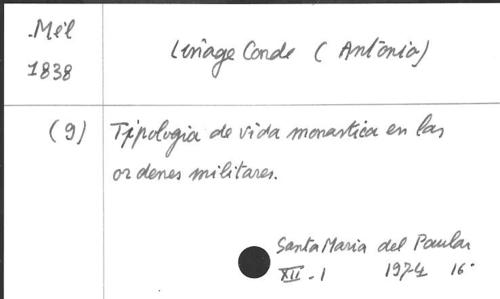 Mél
1838
Linage Conde (Antonio)
(9) Tipologia de vida monastica en las
ordenes militares.
Santa Maria del Paular
XII-1 1974 16°